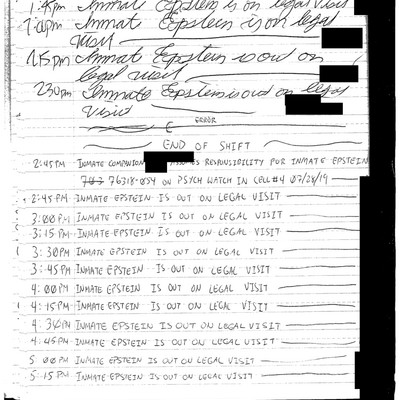 1:45pm Inmate Epstein is on legal visit
2:00pm Inmat Epstein is on legal
visit
2:15pm Inmat Epstein is out on
legal visit
230pm Inmate Epstein is out on legal
visit
ERROR
END OF SHIFT
2:45PM INMATE COMPANION ASSUMES RESPONSIBILITY FOR INMATE EPSTEIN
76318-054 ON PSYCH WATCH IN CELL#4 07/28/19
2:45PM INMATE EPSTEIN IS OUT ON LEGAL VISIT
3:00PM INMATE EPSTEIN IS OUT ON LEGAL VISIT
3:15PM INMATE EPSTEIN IS OUT ON LEGAL VISIT
3:30PM INMATE EPSTEIN IS OUT ON LEGAL VISIT
3:45PM INMATE EPSTEIN IS OUT ON LEGAL VISIT
4:00PM INMATE EPSTEIN IS OUT ON LEGAL VISIT
4:15PM INMATE EPSTEIN IS OUT ON LEGAL VISIT
4:30PM INMATE EPSTEIN IS OUT ON LEGAL VISIT
4:45PM INMATE EPSTEIN IS OUT ON LEGAL VISIT
5:00PM INMATE EPSTEIN IS OUT ON LEGAL VISIT
5:15PM INMATE EPSTEIN IS OUT ON LEGAL VISIT